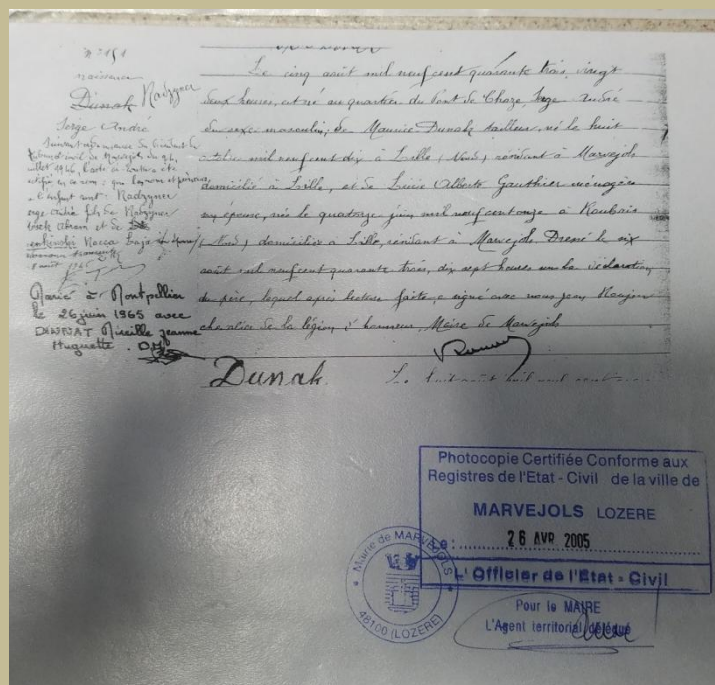 N° 151
naissance
Dunak Radzyner
Serge André
Suivant ordonnance du Président du
Tribunal civil de Marvejols du 24
juillet 1946, l'acte ci-contre est
rectifié en ce sens : que les nom et prénoms
de l'enfant sont : Radzyner
Serge André fils de Radzyner
et de
Mention transcrite
Marié à Montpellier
le 26 juin 1965 avec
Mireille Jeanne
Huguette.
Le cinq août mil neuf cent quarante trois, vingt
deux heures, est né au quartier du Pont de Chaze, Serge André
du sexe masculin, de Maurice Dunak tailleur, né le huit
mil neuf cent dix à Lille (Nord) résidant à Marvejols
domicilié à Lille, et de Alberte Gauthier ménagère
son épouse, née le quatorze juin mil neuf cent onze à Roubaix
(Nord) domiciliée à Lille, résidant à Marvejols. Dressé le six
août mil neuf cent quarante trois, dix sept heures sur la déclaration
du père, lequel après lecture faite, a signé avec nous Jean
chevalier de la légion d'honneur, Maire de Marvejols
Dunak. Le huit août mil neuf cent
Photocopie Certifiée Conforme aux
Registres de l'Etat - Civil de la ville de
MARVEJOLS LOZERE
Le : 26 AVR 2005
L'Officier de l'Etat - Civil
Pour le MAIRE
L'Agent territorial délégué
Mairie de MARVEJOLS
48100 (LOZERE)